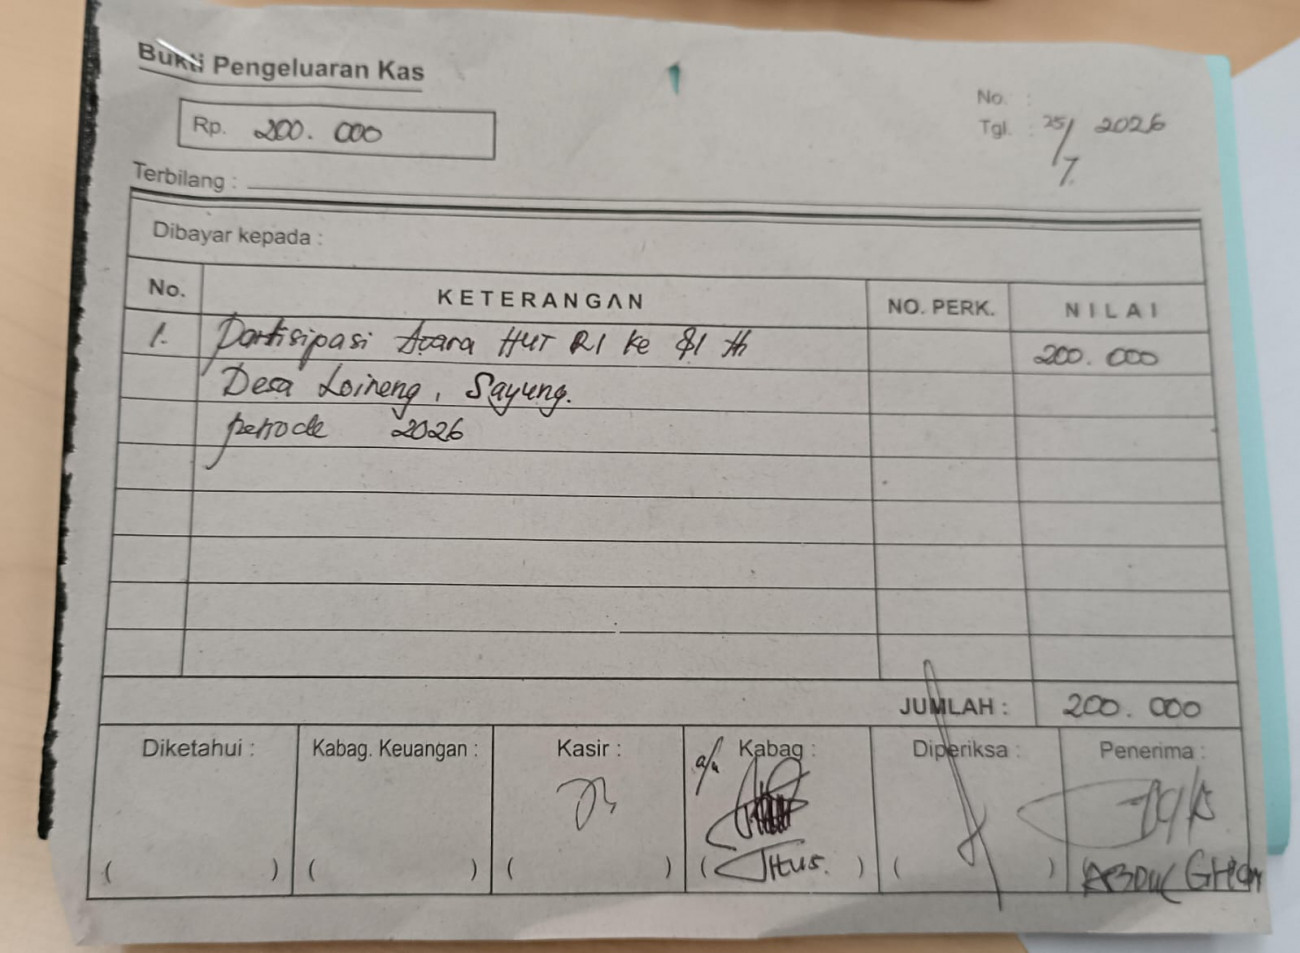 Bukti Pengeluaran Kas
Rp. 200.000
No. :
Tgl. : 25/7 2026
Terbilang :
Dibayar kepada :
No. KETERANGAN NO. PERK. NILAI
1. Partisipasi Acara HUT RI ke 81 th 200.000
Desa Loireng, Sayung.
periode 2026
JUMLAH : 200.000
Diketahui : Kabag. Keuangan : Kasir : a/n Kabag : Diperiksa : Penerima :
( ) ( ) ( ) ( Titus. ) ( ) ABDUL GHANI